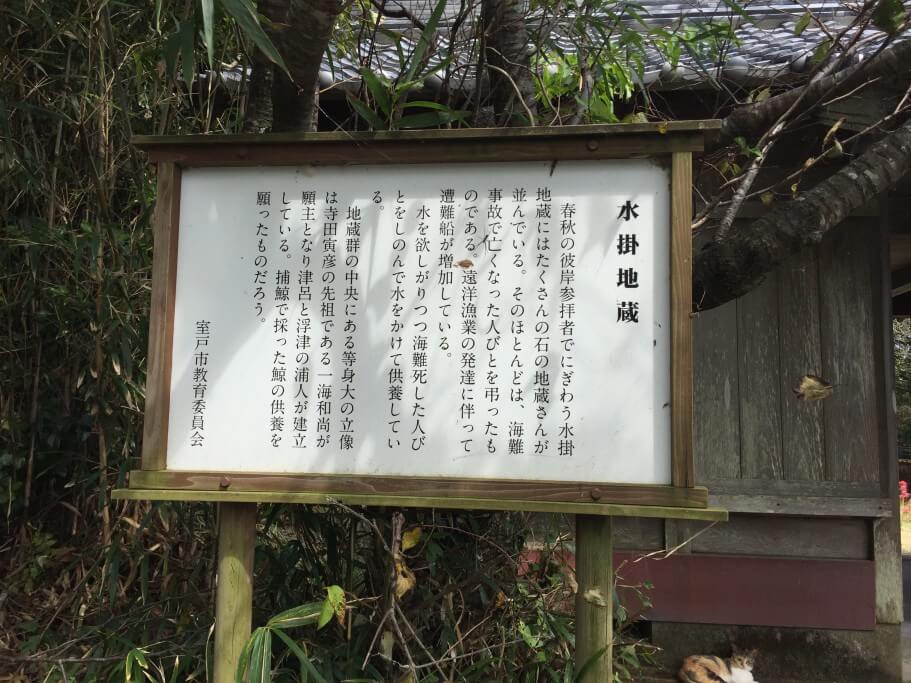 水掛地蔵
春秋の彼岸参拝者でにぎわう水掛
地蔵にはたくさんの石の地蔵さんが
並んでいる。そのほとんどは、海難
事故で亡くなった人びとを弔ったも
のである。遠洋漁業の発達に伴って
遭難船が増加している。
水を欲しがりつつ海難死した人び
とをしのんで水をかけて供養してい
る。
地蔵群の中央にある等身大の立像
は寺田寅彦の先祖である一海和尚が
願主となり津呂と浮津の浦人が建立
している。捕鯨で採った鯨の供養を
願ったものだろう。
室戸市教育委員会